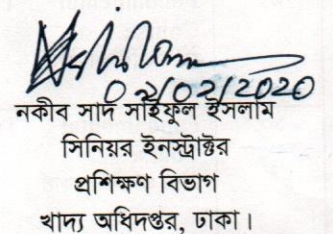 02/02/2020
নকীব সাদ সাইফুল ইসলাম
সিনিয়র ইনস্ট্রাক্টর
প্রশিক্ষণ বিভাগ
খাদ্য অধিদপ্তর, ঢাকা।